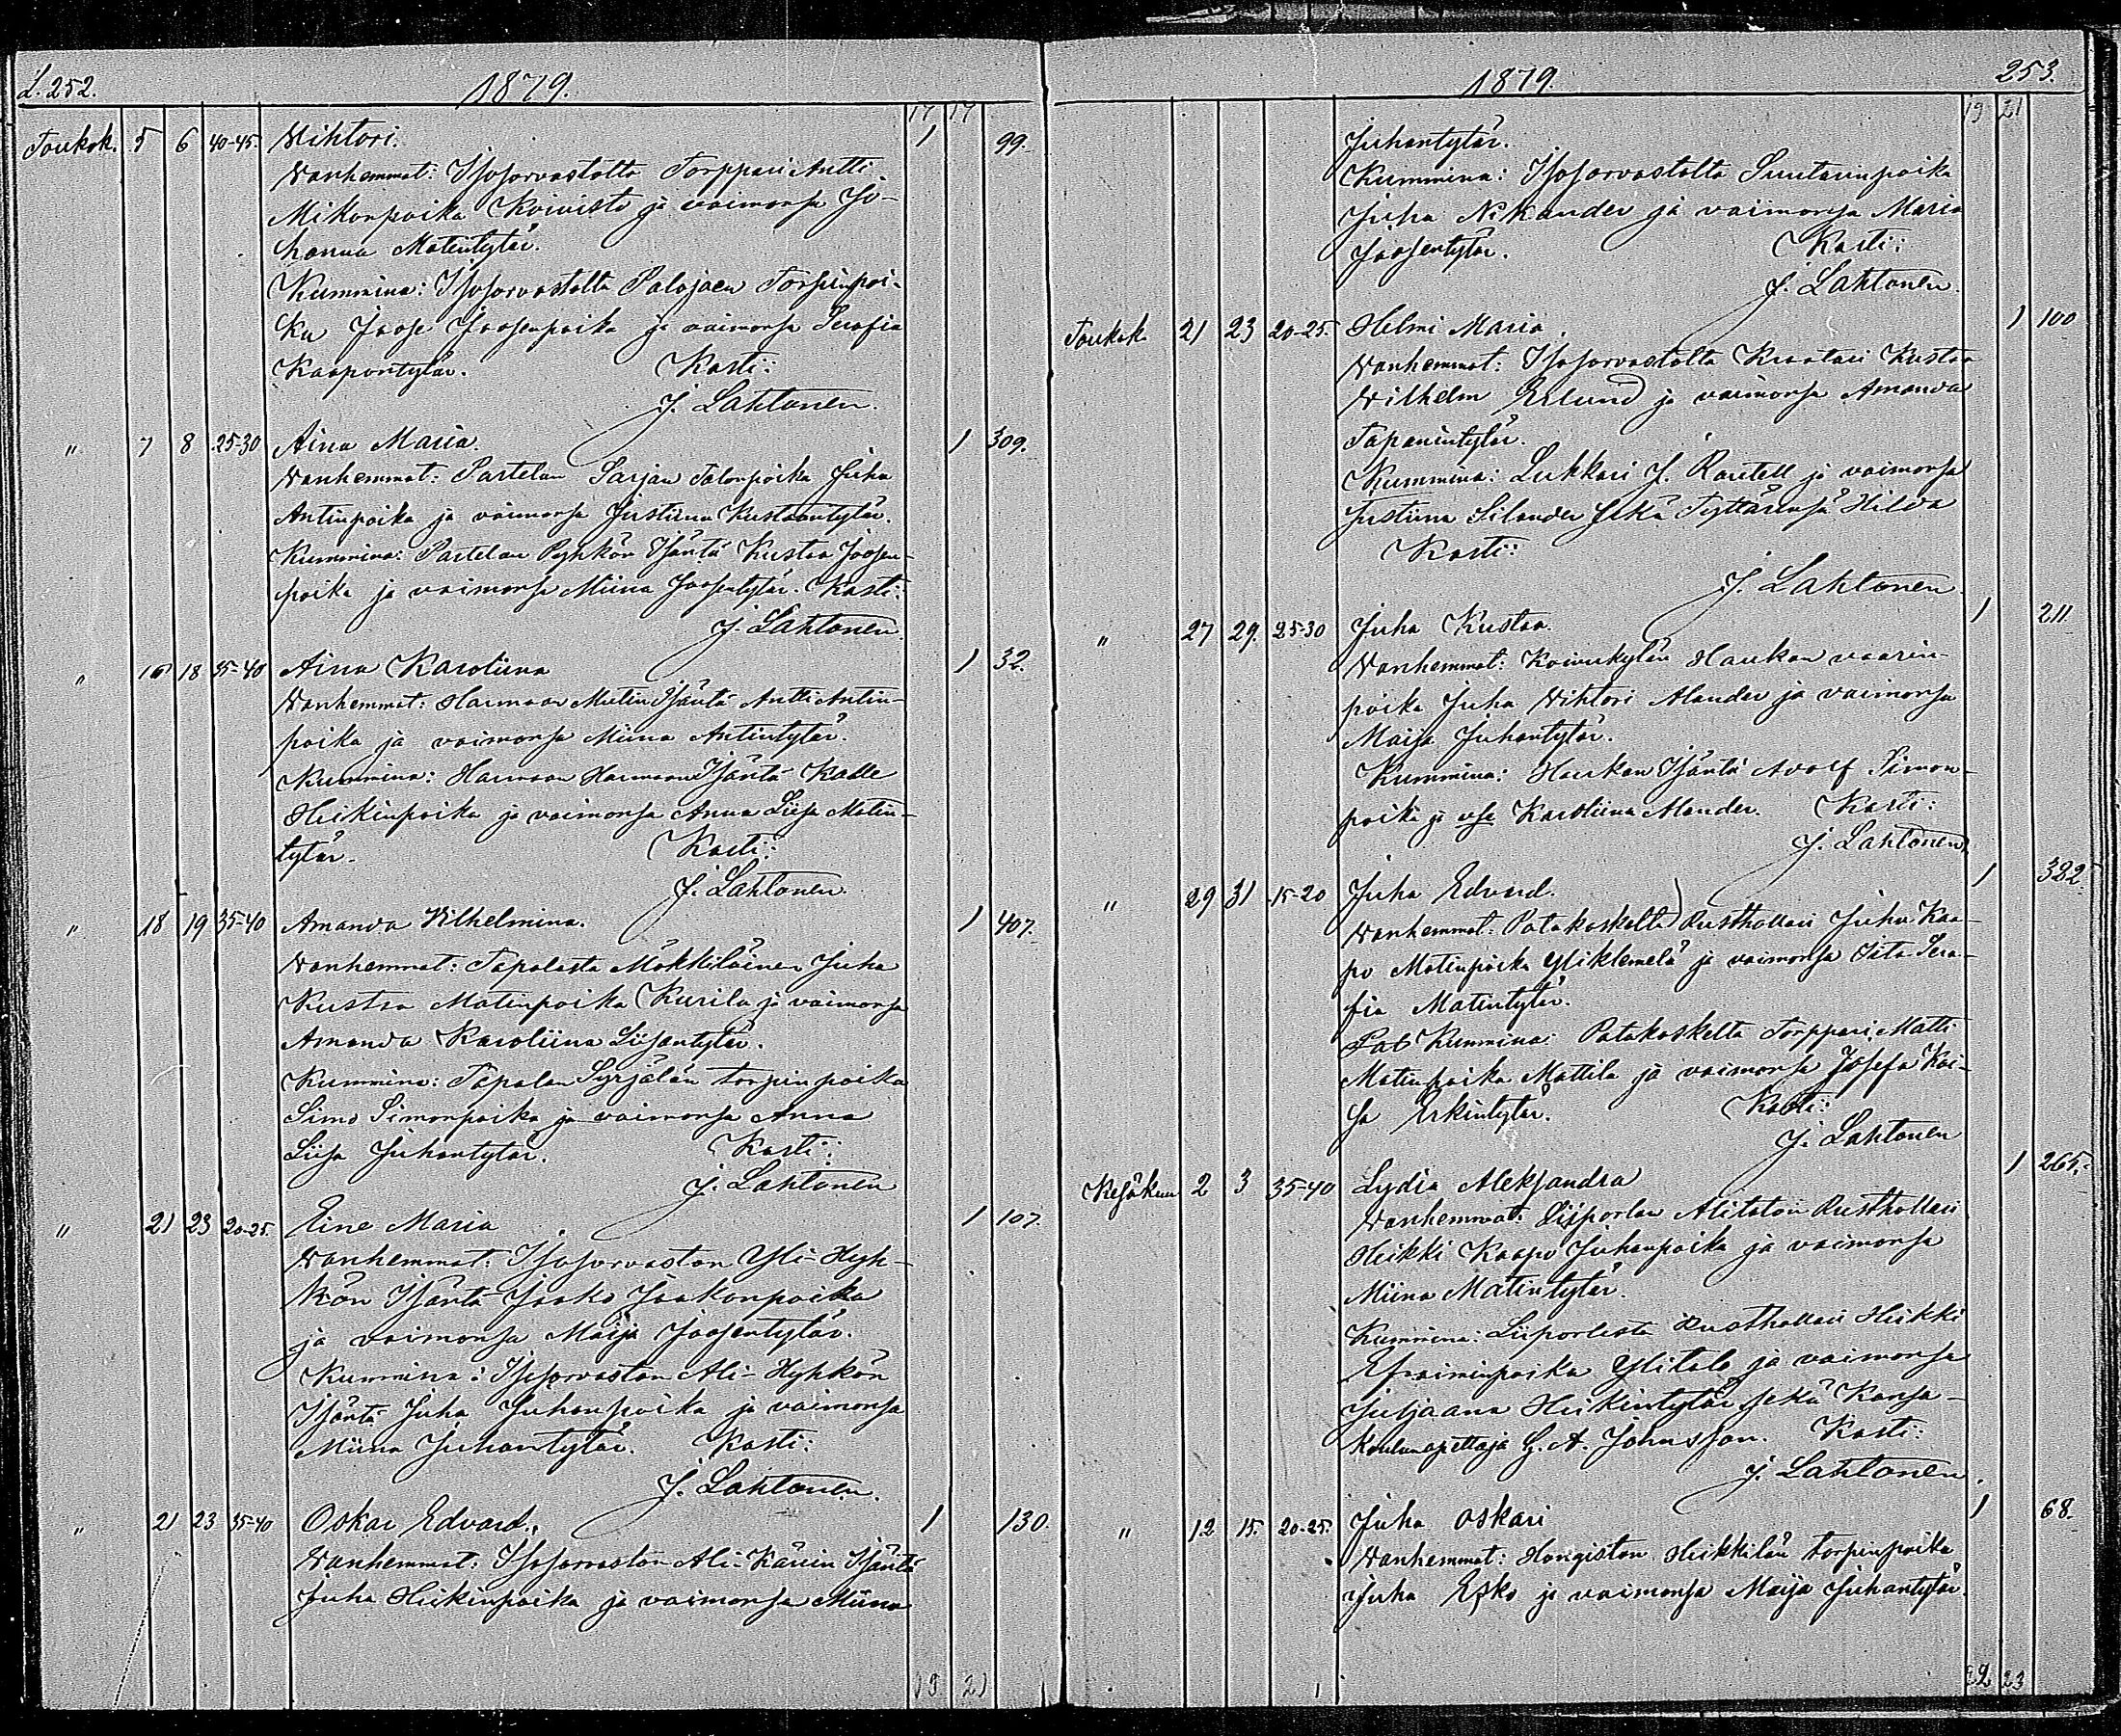 S. 252. 1879.
17 17
Toukok. 5 6 40-45. Wihtori. 1 99.
Vanhemmat: Isosorvastolta Torppari Antti
Mikonpoika Koivisto ja vaimonsa Jo-
hanna Matintytär.
Kummina: Isosorvastolta Palojaen Torpinpoi-
ka Joose Joosenpoika ja vaimonsa Serafia
Kaapontytär. Kasti:
J. Lahtonen.
" 7 8 25-30 Aina Maria. 1 309.
Vanhemmat: Partelan Sarjan Talonpoika Juha
Antinpoika ja vaimonsa Justiina Kustaantytär.
Kummina: Partelan Pyhkön Isäntä Kustaa Joosen-
poika ja vaimonsa Miina Joosentytär. Kasti:
J. Lahtonen.
" 16 18 35-40 Aina Karoliina 1 32.
Vanhemmat: Harmaan Isäntä Antti Antin-
poika ja vaimonsa Miina Antintytär.
Kummina: Harmaan Harmaan Isäntä Kalle
Heikinpoika ja vaimonsa Anna Liisa Matin-
tytär. Kasti:
J. Lahtonen
" 18 19 35-40 Amanda Vilhelmina. 1 407.
Vanhemmat: Tapalasta Mökkiläinen Juha
Kustaa Matinpoika Kurila ja vaimonsa
Amanda Karoliina Liisantytär.
Kummina: Tapalan Syrjälän torpin poika
Simo Simonpoika ja vaimonsa Anna
Liisa Juhantytär. Kasti:
J. Lahtonen
" 21 23 20-25. Eine Maria 1 107.
Vanhemmat: Isosorvaston Yli-Hyh-
kön Isäntä Jaako Jaakonpoika
ja vaimonsa Maija Joosentytär.
Kummina: Isosorvaston Ali-Hyhkön
Isäntä Juha Juhanpoika ja vaimonsa
Miina Juhantytär. Kasti:
J. Lahtonen.
" 21 23 35-40 Oskar Edvard. 1 130.
Vanhemmat: Isosorvaston Ali-Kärin Isäntä
Juha Heikinpoika ja vaimonsa Miina
19 21
1879. 253.
19 21
Juhantytär.
Kummina: Isosorvastolta Suutarinpoika
Juha Nikander ja vaimonsa Maria
Joosentytär. Kasti:
J. Lahtonen.
Toukok 21 23 20-25. Helmi Maria. 1 100
Vanhemmat: Isosorvastolta Kraatari Kustaa
Wilhelm Erlund ja vaimonsa Amanda
Tapanintytär.
Kummina: Lukkari J. Rantell ja vaimonsa
Justiina Silander sekä Tyttärensä Hilda
Kasti:
J. Lahtonen.
" 27 29. 25-30 Juha Kustaa. 1 211.
Vanhemmat: Koivukylän Haukan vaarin-
poika Juha Vihtori Alander ja vaimonsa
Maija Juhantytär.
Kummina: Haukan Isäntä Adolf Simon-
poika ja vsa Karoliina Alander. Kasti:
J. Lahtonen.
" 29 31 15-20 Juha Edvard. 1 382.
Vanhemmat: Patakoskelta Rusthollari Juha Kaa-
po Matinpoika Yliklemelä ja vaimonsa Iita Sera-
fia Matintytär.
Pat Kummina: Patakoskelta Torppari Matti
Matinpoika Mattila ja vaimonsa Josefa Kai-
sa Erkintytär. Kasti:
J. Lahtonen
Kesäkuu 2 3 35-40 Lydia Aleksandra 1 265.
Vanhemmat: Liiporlan Alitalon Rusthollari
Heikki Kaapo Juhanpoika ja vaimonsa
Miina Matintytär.
Kummina: Liiporlasta Rusthollari Heikki
Efraiminpoika Ylitalo ja vaimonsa
Juljaana Heikintytär sekä Kansa-
koulunopettaja G. A. Johnsson. Kasti:
J. Lahtonen.
" 12 15. 20-25. Juha Oskari 1 68.
Vanhemmat: Hongiston Heikkilän torpinpoika
Juha Esko ja vaimonsa Maija Juhantytär.
22 23